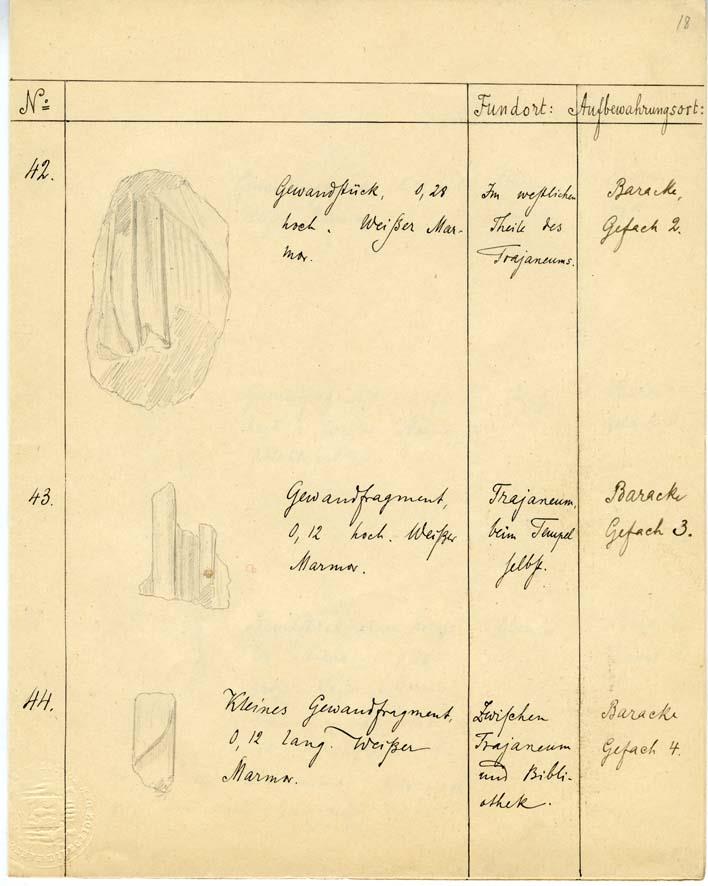 18
No: Fundort: Aufbewahrungsort:
42.
Gewandstück, 0,28
hoch. Weißer Mar-
mor.
Im westlichen
Theile des
Trajaneums.
Baracke,
Gefach 2.
43.
Gewandfragment,
0,12 hoch. Weißer
Marmor.
Trajaneum,
beim Tempel
selbst.
Baracke
Gefach 3.
44.
Kleines Gewandfragment,
0,12 lang. Weißer
Marmor.
Zwischen
Trajaneum
und Bibli-
othek.
Baracke
Gefach 4.